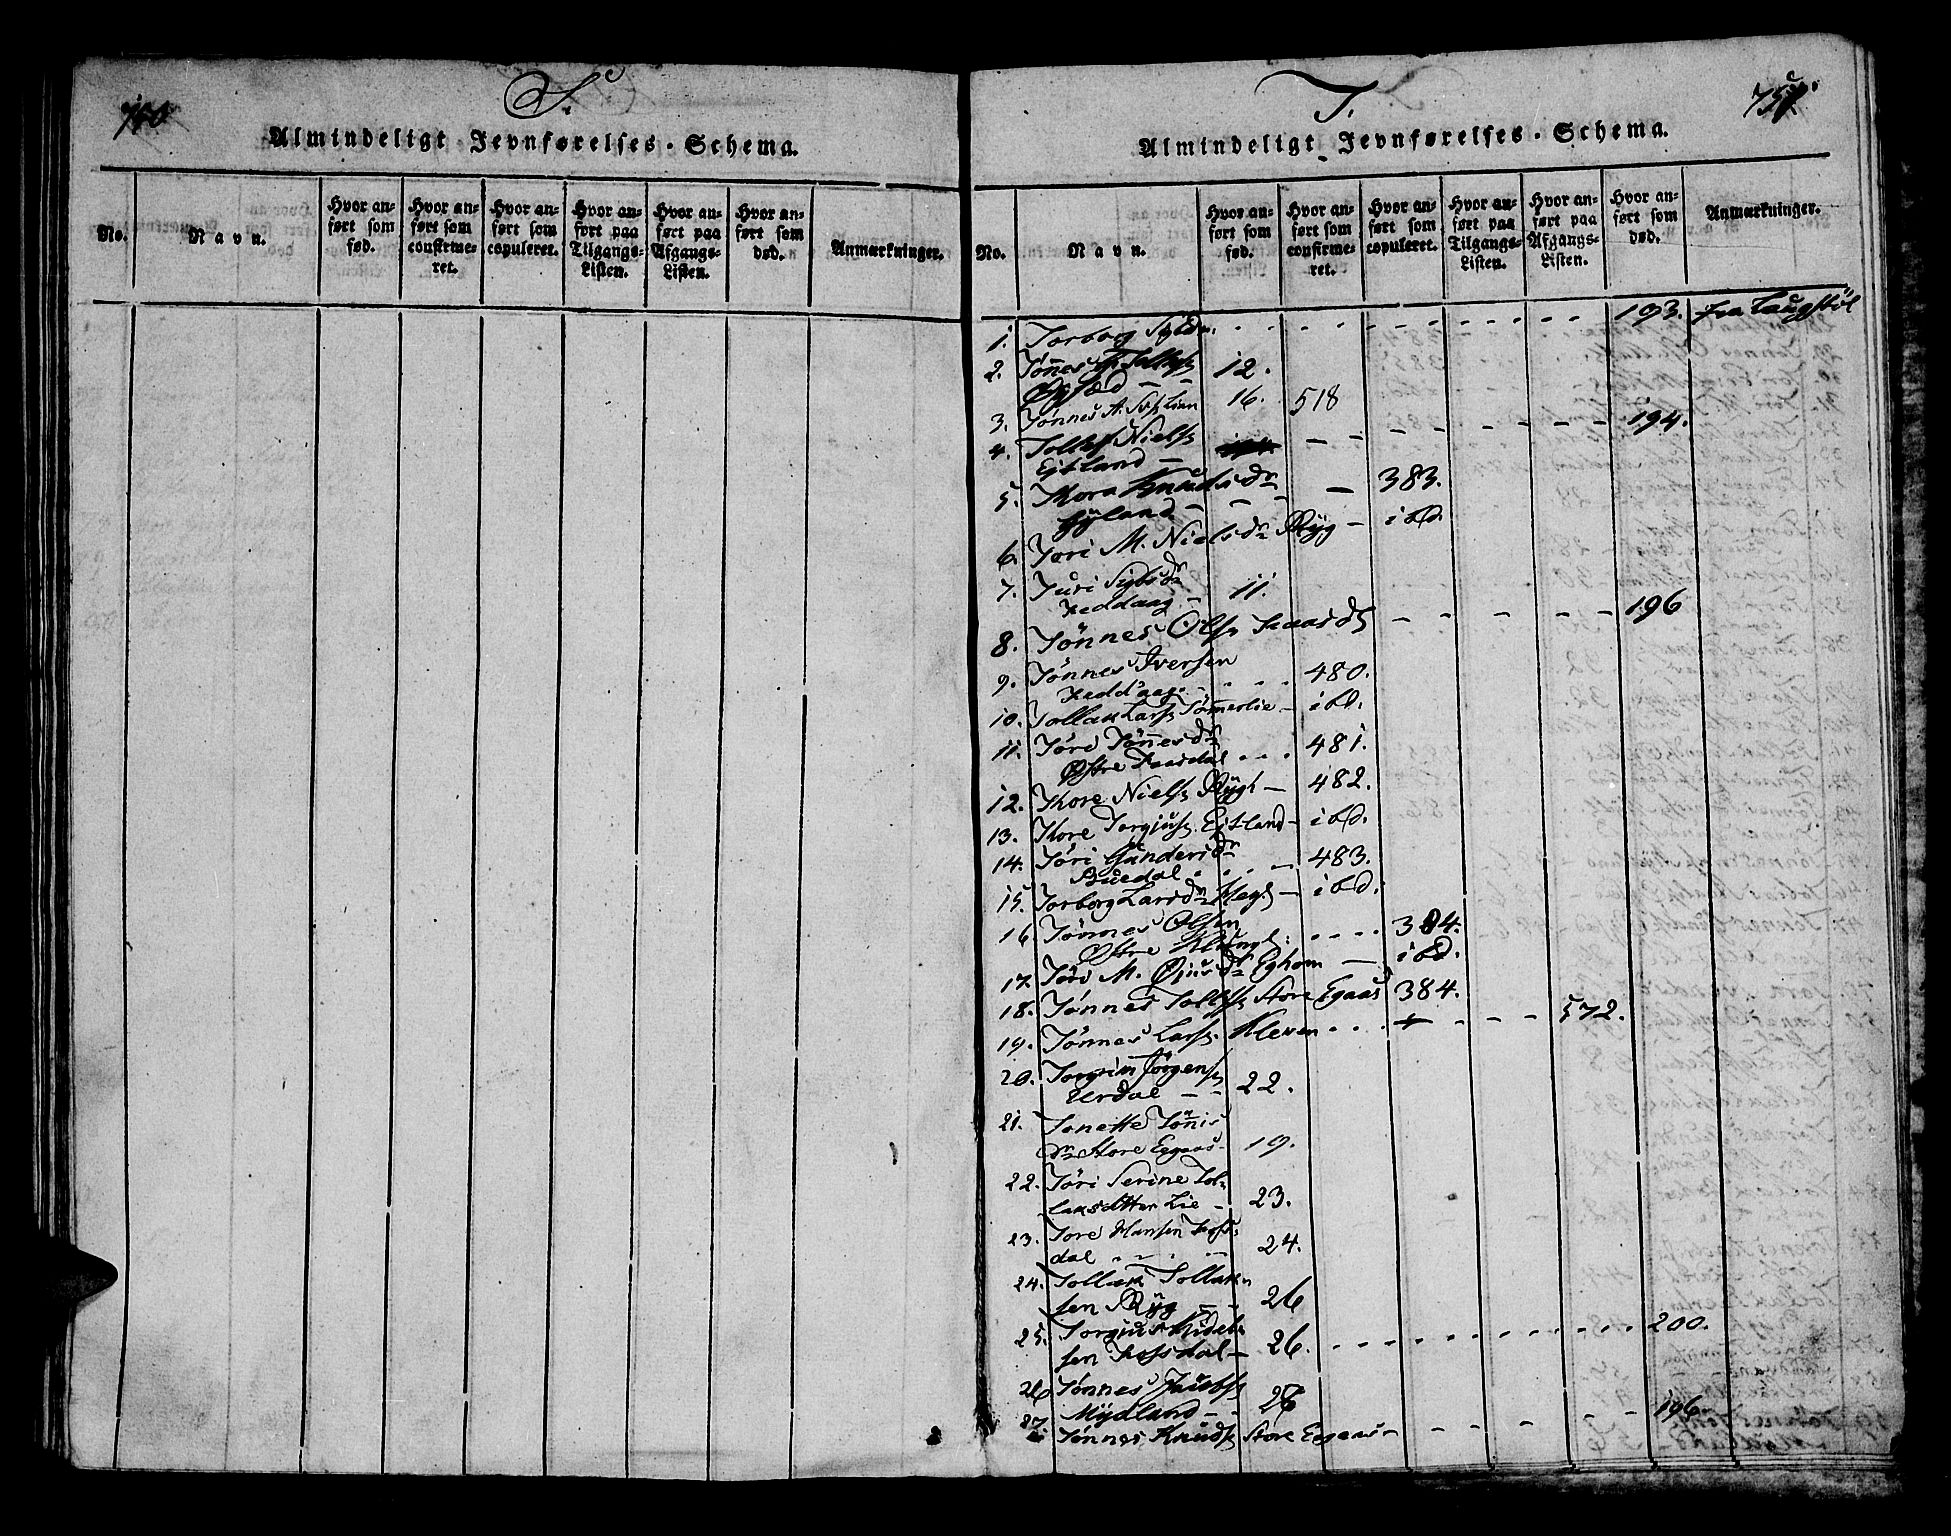 740
S.
Almindeligt Jevnførelses-Schema.
No.
Navn.
Hvor anført som fød.
Hvor anført som confirmeret.
Hvor anført som copuleret.
Hvor anført paa Tilgangs-Listen.
Hvor anført paa Afgangs-Listen.
Hvor anført som død.
Anmærkninger.
T.
Almindeligt Jevnførelses-Schema.
No.
Navn.
Hvor anført som fød.
Hvor anført som confirmeret.
Hvor anført som copuleret.
Hvor anført paa Tilgangs-Listen.
Hvor anført paa Afgangs-Listen.
Hvor anført som død.
Anmærkninger.
1. Torborg - - - 193. fra Laugstöl
2. Tönnes Tollefs 12.
Øgsted - -
3. Tönnes A. Lien 16. 518
4. Tollef Niels - - - 194.
Eitland -
5. Thora Knudsdr - 383.
Hyland - -
6. Tori M. Nielsdr Ryg - ibd.
7. Turi Sybsdr
Feddaag - 11.
8. Tönnes Ols - - - 196
9. Tönnes Iversen
Feddaag. - 480.
10. Tollak Lars Tömerlie - ibd.
11. Töri Tönnesdr
Østre - - - 481.
12. Thore Niels Rygh - 482.
13. Thore Torgius Eitland - ibd.
14. Töri Gundersdr
Buedal - - 483.
15. Torborg Larsdr - ibd.
16 Tönnes Olsen
Østre - - - 384.
17. Töri M. Egham - ibd.
18. Tönnes Tollefs Store Egaas 384.
19. Tönnes Lars Kleven - - - 572.
20. Torgrim Jörgens
Urdal - - 22.
21. Tonette Tönnis
dr Store Egaas - 19.
22. Töri Serine Tol-
laksdatter Lie - 23.
23. Tore Hansen Foss-
dal - - 24.
24. Tollak Tollak-
sen Ryg - - 26
25. Torgius Mickel-
sen Fossdal - 26. - - - 200.
26 Tönnes Jacobs
Mydland - - 26
27. Tönnes Knuds Store Egaas - - - 196.